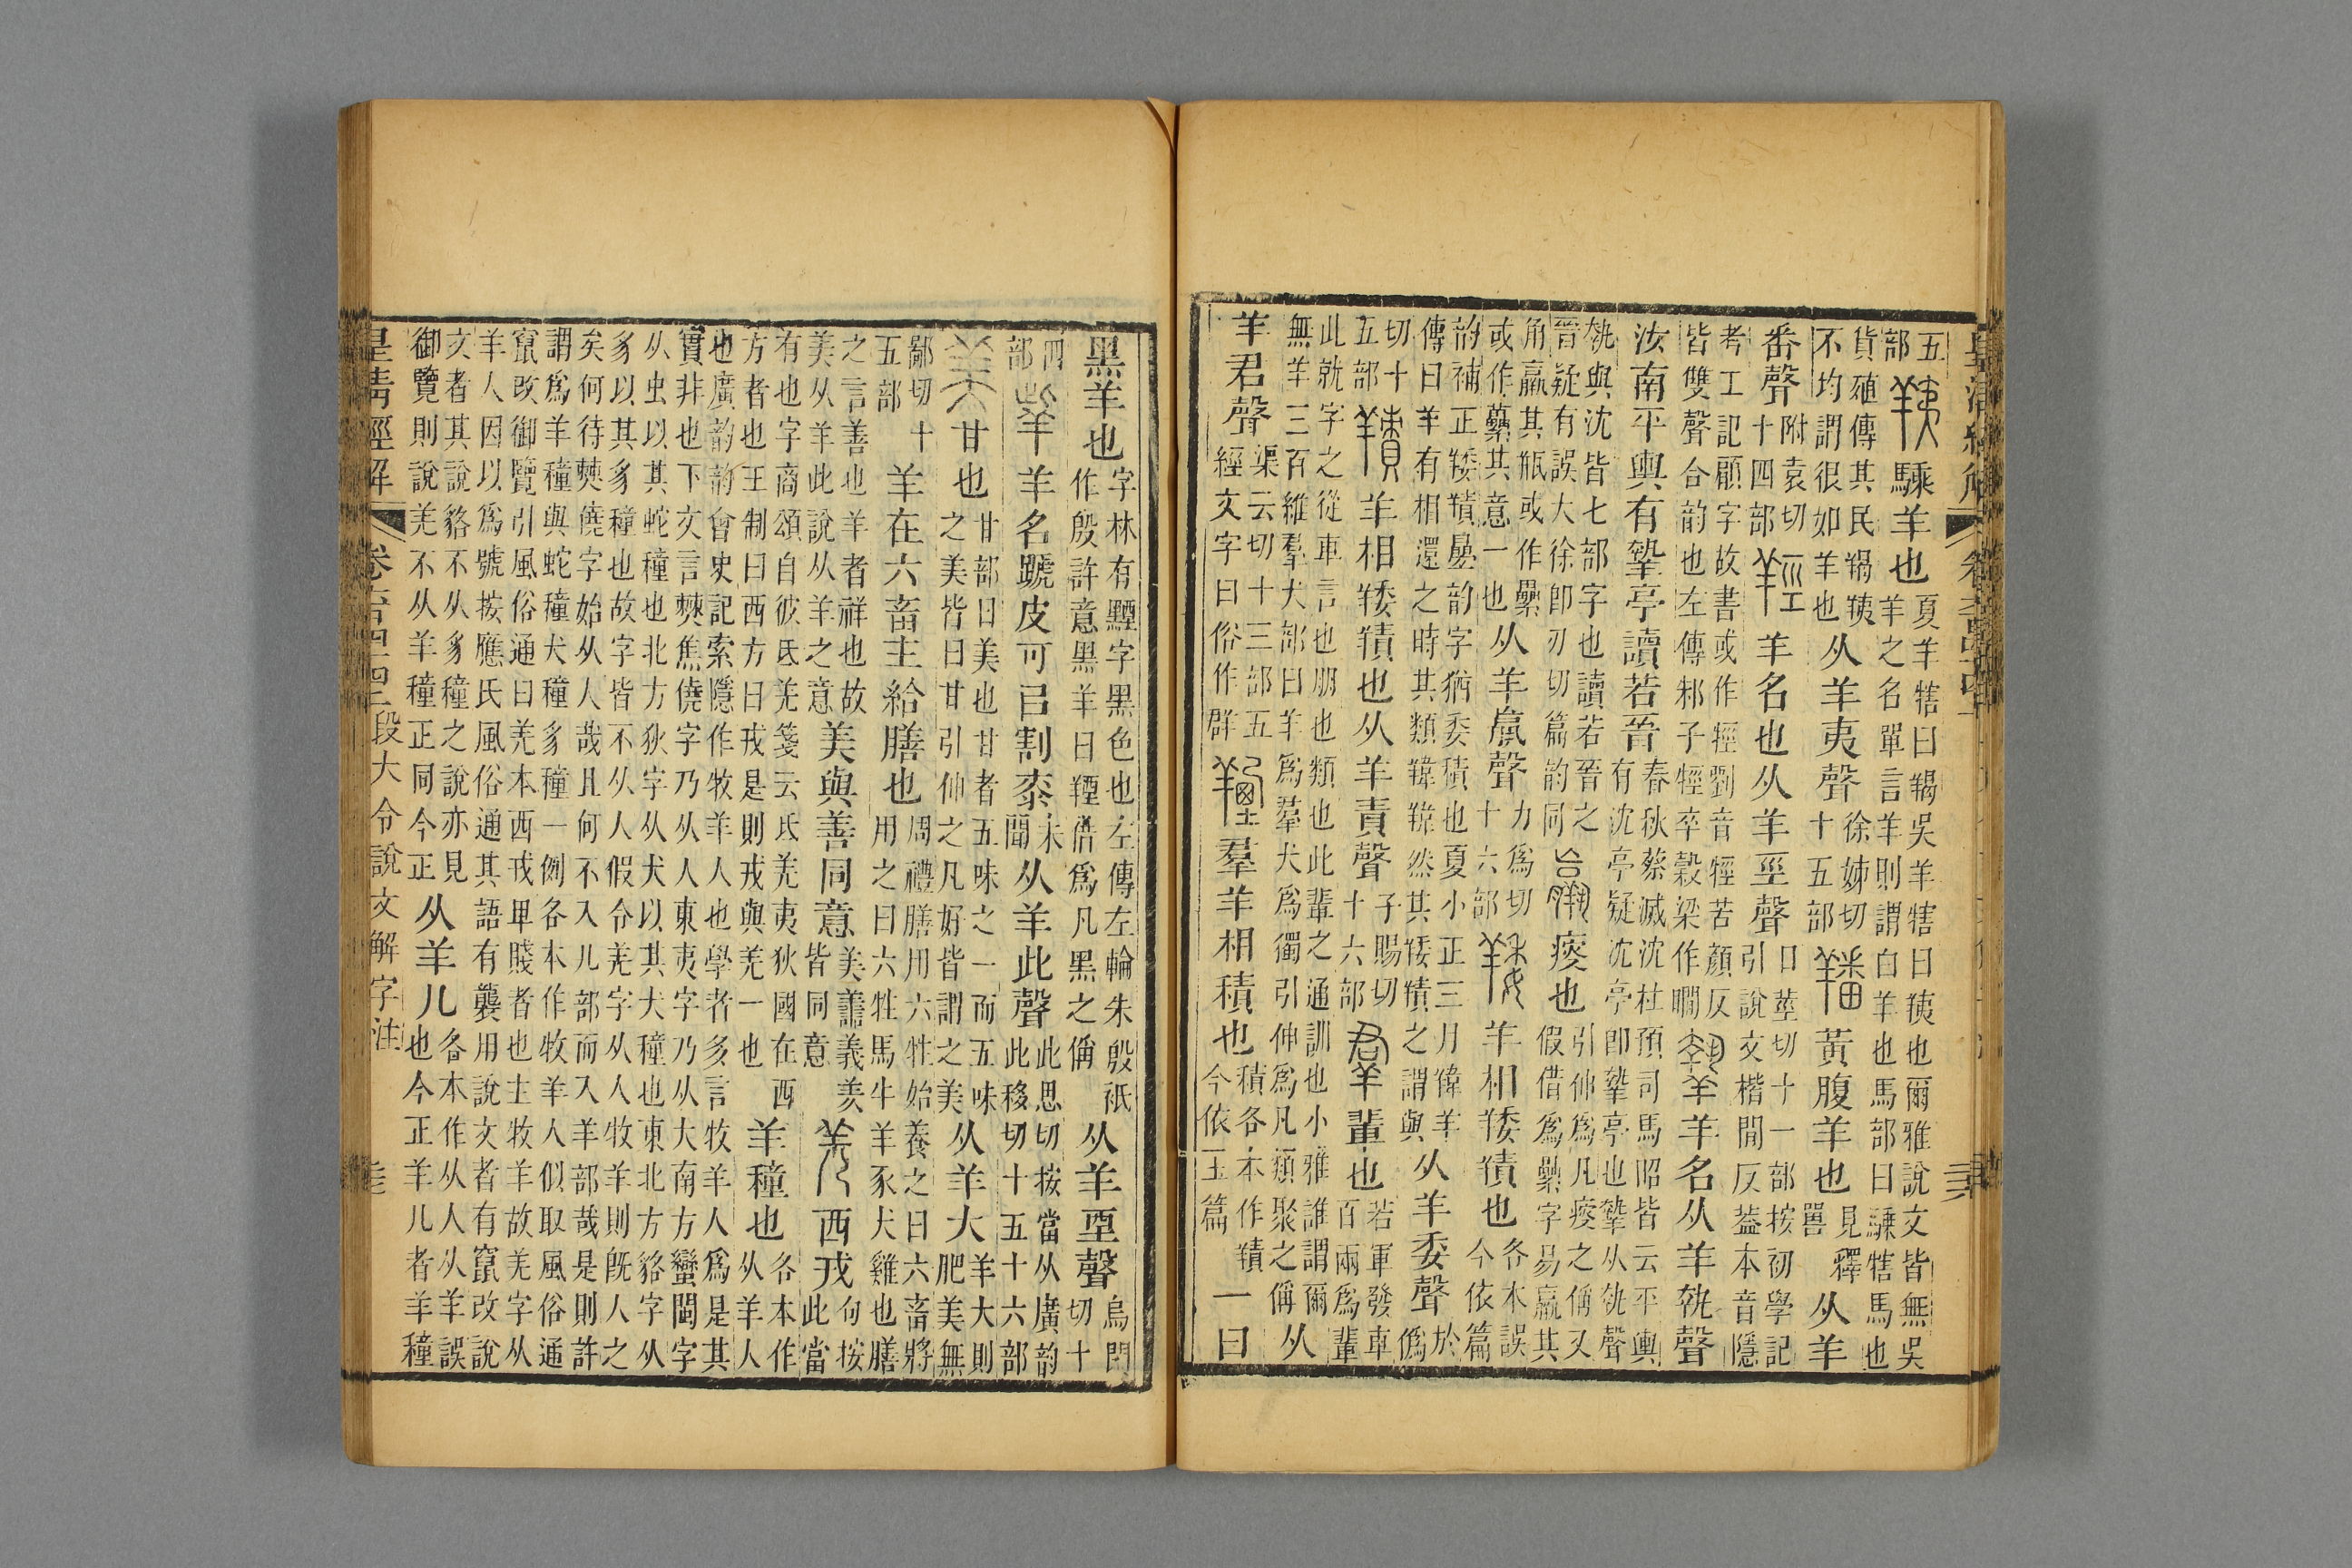 皇清經解
五部騬羊也夏羊犗曰羯吳羊犗曰羠也爾雅說文皆無吳羊之名單言羊則謂白羊也馬部曰騬犗馬也
貨殖傳其民羯羠不均謂很如羊也从羊夷聲徐姊切十五部羳黃腹羊也見釋嘼从羊
番聲附袁切十四部羥羊名也从羊巠聲口莖切十一部按初學記引說文楷閒反葢本音隱
考工記顧字故書或作牼劉音牼苦顏反皆雙聲合韵也左傳邾子牼卒榖梁作瞷羊名从羊執聲
汝南平輿有摯亭讀若晉春秋蔡滅沈杜預司馬昭皆云平輿有沈亭疑沈亭卽摯亭也摯从執聲
執與沈皆七部字也讀若晉之晉疑有誤大徐卽刃切篇韵同羸瘦也引伸爲凡瘦之偁又假借爲纍字易羸其
角羸其瓶或作纍或作虆其意一也从羊𣎆聲力爲切十六部䍴羊相䍴𦎣也各本誤今依篇
韵補正䍴𦎣曡韵字猶委積也夏小正三月羊傳曰羊有相還之時其類然其䍴𦎣之謂與从羊委聲於僞
切十五部𦎣羊相䍴𦎣也从羊責聲子賜切十六部羣輩也若軍發車百兩爲輩
此就字之從車言也朋也類也此輩之通訓也小雅誰謂爾無羊三百維羣犬部曰羊爲羣犬爲獨引伸爲凡類聚之偁从
羊君聲渠云切十三部五經文字曰俗作群羣羊相積也積各本作𦎣今依玉篇一曰
黑羊也字林有黫字黑色也左傳左輪朱殷祇作殷許意黑羊曰借爲凡黑之偁从羊垔聲烏閑切十
四部羊名蹏皮可㠯割桼未聞从羊此聲此思切按當从廣韵此移切十五十六部
美甘也甘部曰美也甘者五味之一而五味之美皆曰甘引伸之凡好皆謂之美从羊大羊大則肥美無
鄙切十五部羊在六畜主給膳也周禮膳用六牲始養之曰六畜將用之曰六牲馬牛羊豕犬雞也膳
之言善也羊者祥也故美从羊此說从羊之意美與善同意美譱義羑皆同意羌西戎句按此當
有也字商頌自彼氐羌箋云氐羌夷狄國在西方者也王制曰西方曰戎是則戎與羌一也羊穜也各本作从羊人
也廣韵韵會史記索隱作牧羊人也學者多言牧羊人爲是其實非也下文言僰焦僥字乃从人東夷字乃从大南方蠻閩字
从虫以其蛇穜也北方狄字从犬以其犬穜也東北方貉字从豸以其豸穜也故字皆不从人假令羌字从人牧羊則旣人之
矣何待僰僥字始从人哉且何不入儿部而入羊部哉是則許謂爲羊穜與蛇穜犬穜豸穜一例各本作牧羊人似取風俗通
竄改御覽引風俗通曰羌本西戎卑賤者也主牧羊故羌字从羊人因以爲號按應氏風俗通其語有襲用說文者有竄改說
文者其說貉不从豸穜之說亦見御覽則說羌不从羊穜正同今正从羊儿各本作从人从羊誤也今正羊儿者羊穜
皇清經解 段大令說文解字注